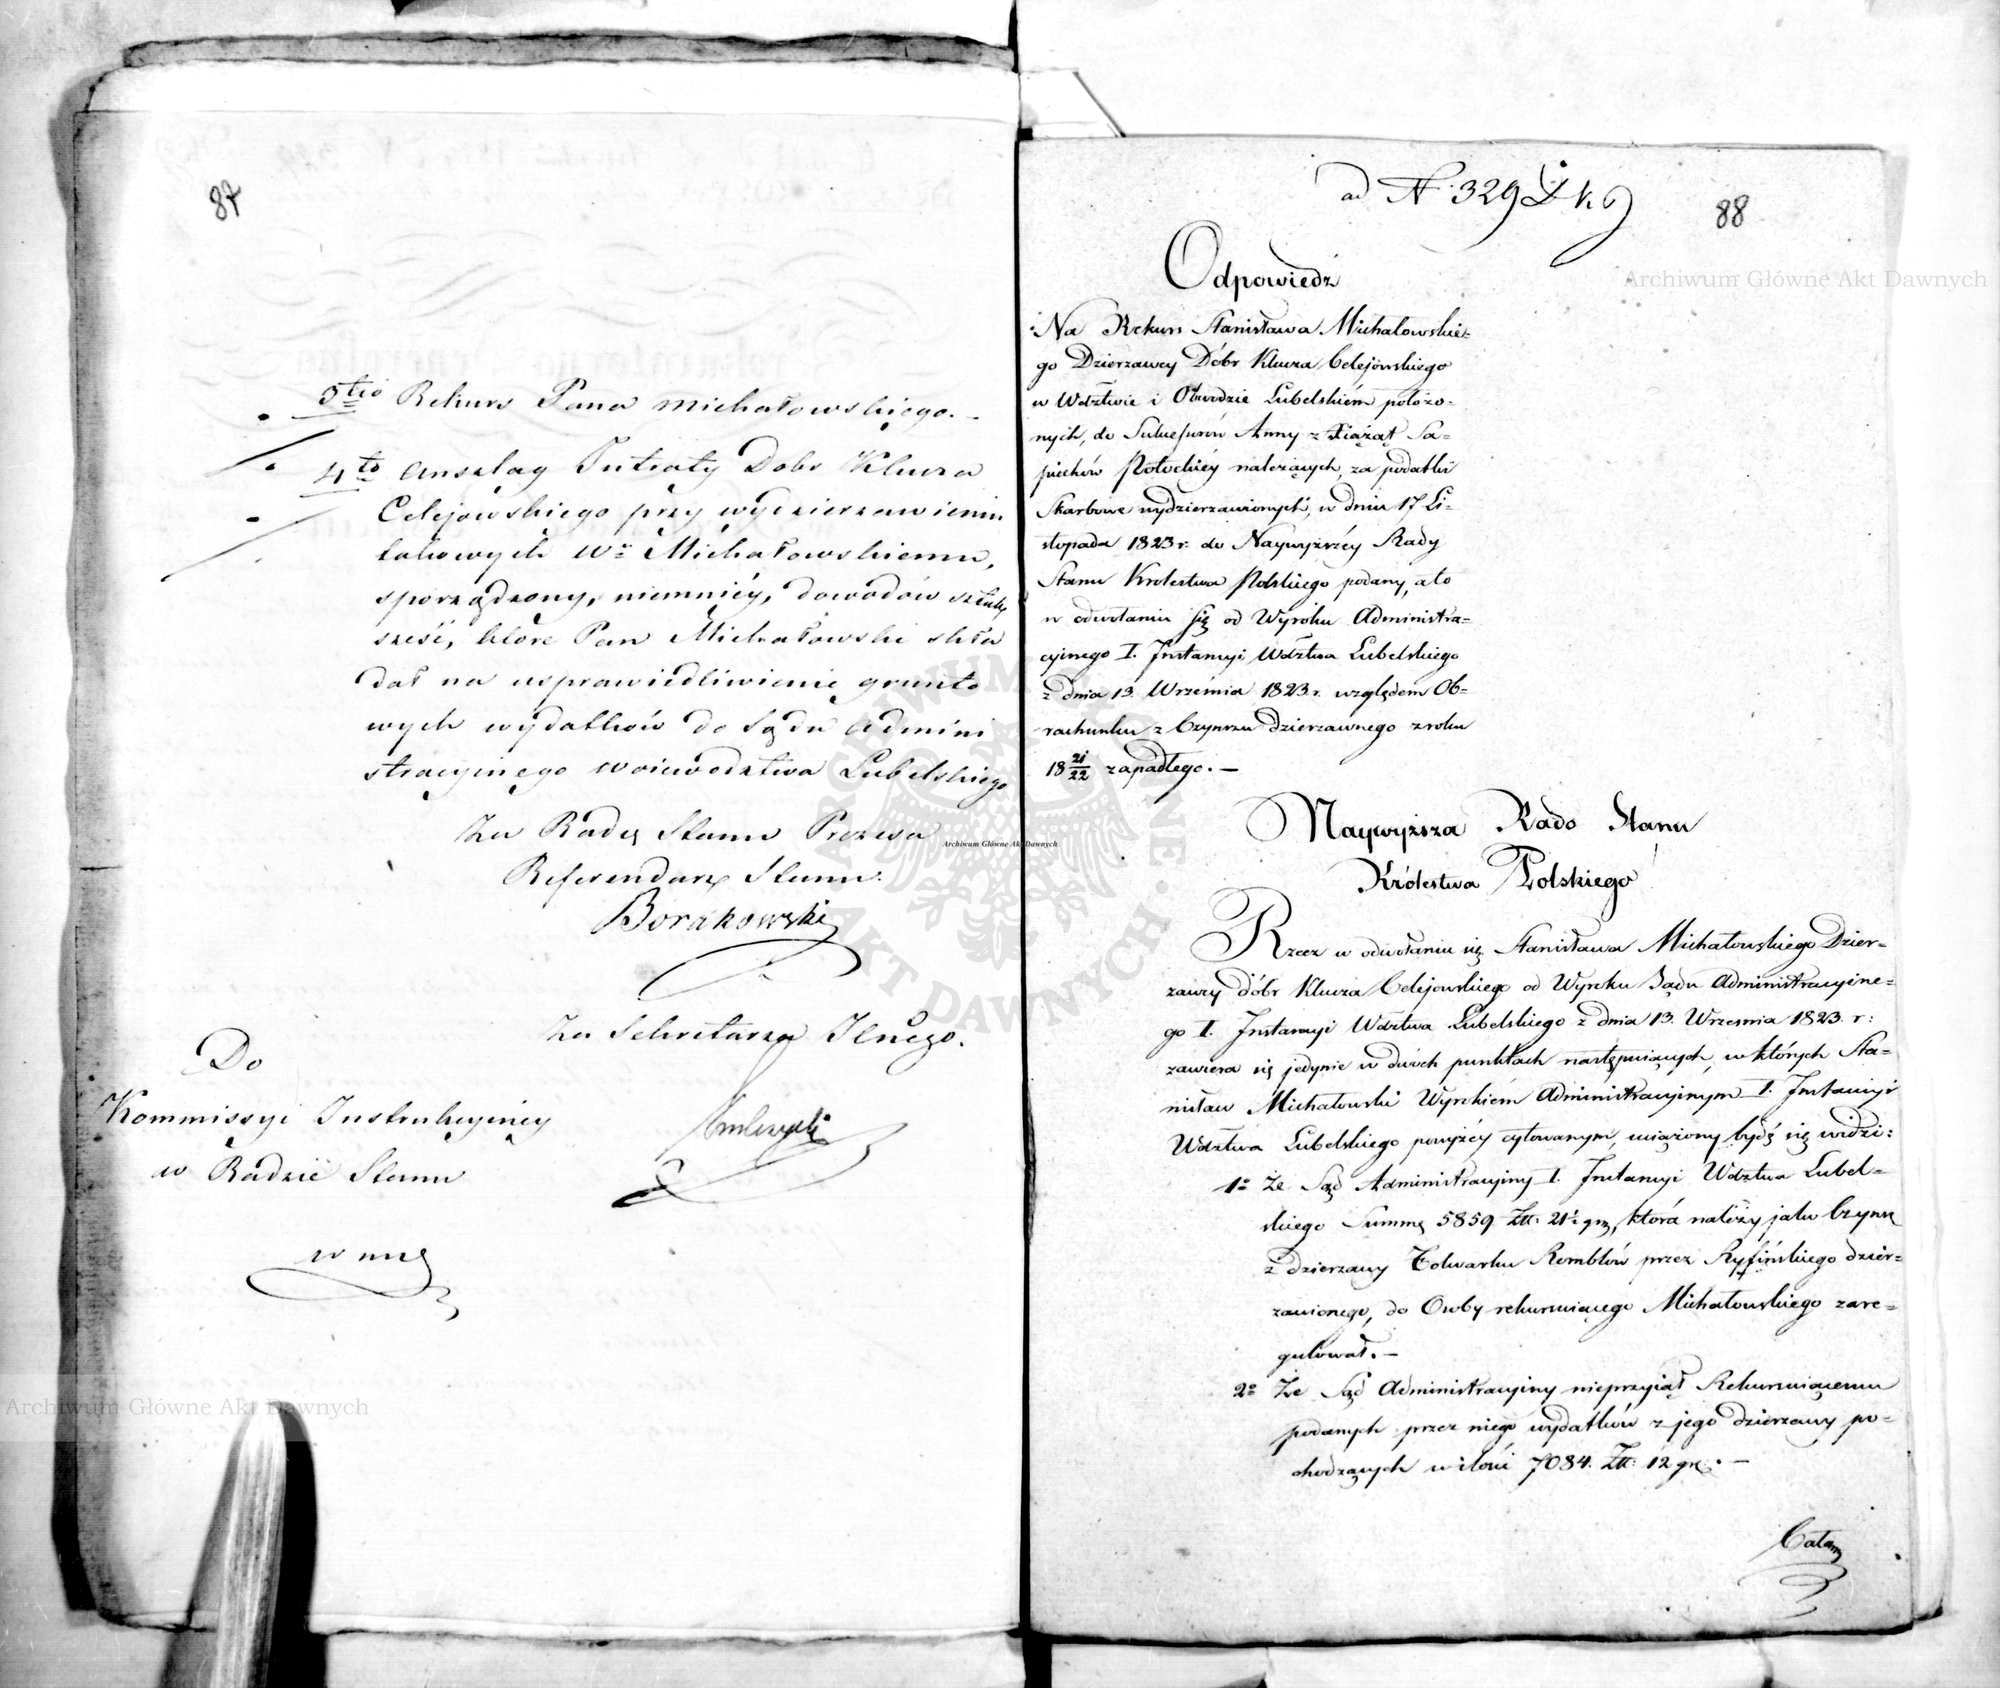 87
3tio Rekurs Pana Michałowskiego. —
4to Anszlag Intraty Dobr Klucza
Celejowskiego przy wydzierzawieniu
takowych Wu Michałowskiemu,
sporządzony, niemniéy, dowodów sztuk
sześć, które Pan Michałowski skła
dał na usprawiedliwienie grunto
wych wydatków do Sądu Admini
stracyinego Woiewodztwa Lubelskiego
Za Radcę Stanu Prezesa
Referendarz Stanu.
Borakowski
Za Sekretarza Jlnego.
Do
Kommissyi Instrukcyinéy
w Radzie Stanu
ad N. 329
88
Odpowiedź
Na Rekurs Stanisława Michałowskie-
go Dzierzawcy Dóbr Klucza Celejowskiego
w Wdztwie i Obwodzie Lubelskiém położo-
nych, do Sukcessorów Anny z Xiążąt Sa-
piehów Potockiéy należących, za podatki
Skarbowe wydzierzawionych, w dniu 17 Li-
stopada 1823 r. do Naywyższéy Rady
Stanu Krolestwa Polskiego podany, a to
w odwołaniu się od Wyroku Administra-
cyinego I. Instancyi Wdztwa Lubelskiego
z dnia 13. Września 1823. r. względem Ob-
rachunku z Czynszu dzierzawnego z roku
18 21/22 zapadłego. —
Naywyższa Rado Stanu
Królestwa Polskiego
Rzecz w odwołaniu się Stanisława Michałowskiego Dzier-
zawcy dóbr Klucza Celejowskiego od Wyroku Sądu Administracyine-
go I. Instancyi Wdztwa Lubelskiego z dnia 13. Września 1823. r:
zawiera się jedynie w dwóch punktach następuiących, w których Sta-
nisław Michałowski Wyrokiem Administracyinym I. Instancyi
Wdztwa Lubelskiego powyżéy cytowanym, uciążony bydź się widzi:
1o Że Sąd Administracyiny I. Instancyi Wdztwa Lubel-
skiego Summę 5859 Złt: 21½ gr, która należy jako Czynsz
z dzierzawy Folwarku Rombłów przez Ryfińskiego dzier-
zawionego, do Osoby rekursuiącego Michałowskiego zare-
gulował. —
2o Że Sąd Administracyiny nieprzyiął Rekursuiącemu
podanych przez niego wydatków z jego dzierzawy po-
chodzących w ilości 7084. Złt: 12 gr. —
Archiwum Główne Akt Dawnych
Archiwum Główne Akt Dawnych
Archiwum Główne Akt Dawnych
ARCHIWUM GŁÓWNE AKT DAWNYCH